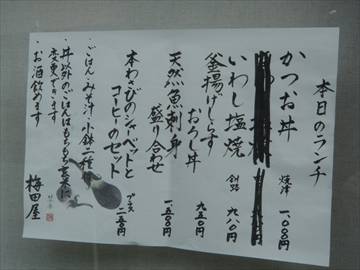 本日のランチ
かつお丼 焼津 一、〇〇〇円
いわし塩焼 釧路 九八〇円
釜揚げしらすおろし丼 九五〇円
天然魚刺身盛り合わせ 一、五〇〇円
本わさびのシャーベットと
コーヒーのセット プラス 二五〇円
・ごはん・みそ汁・小鉢二種付
・丼以外のごはんはもちもち玄米に
変更できます
・お酒飲めます
梅田屋